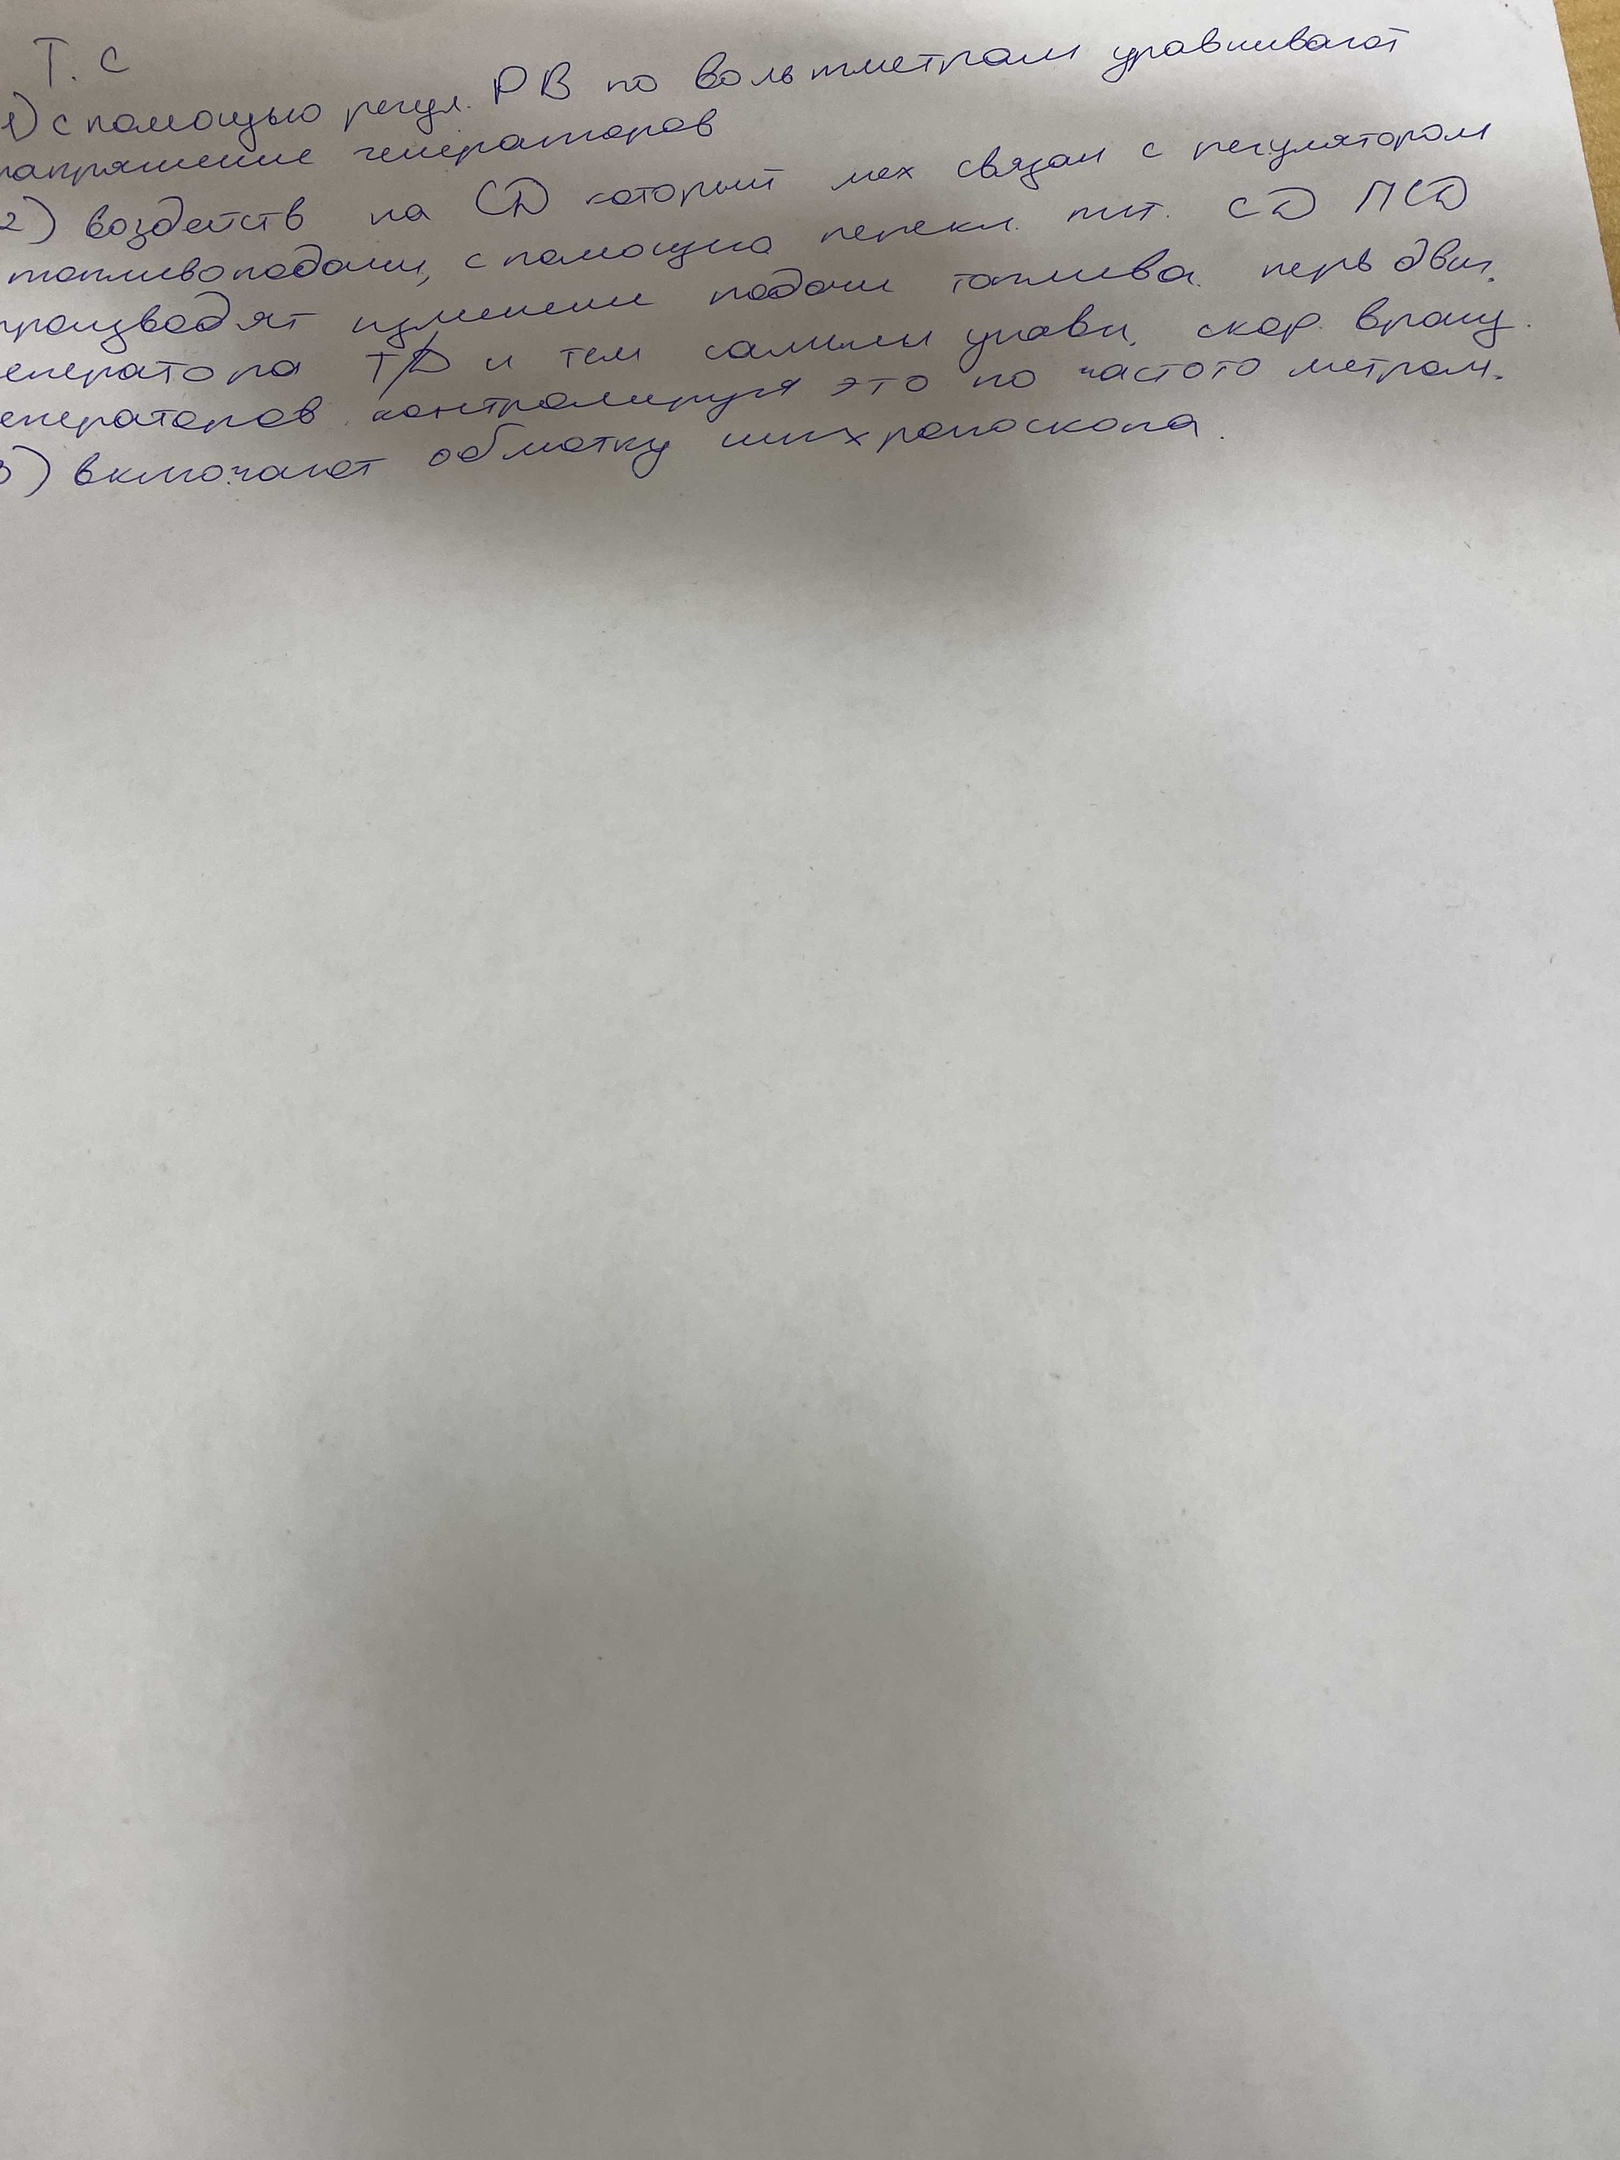 Т. С
1) с помощью регул. РВ по вольтметрам уравнивают
напряжение генераторов
2) воздейств на СД который мех связан с регулятором
топливоподачи, с помощию перекл. пит. СД ПСД
производят изменение подачи топлива перв двиг.
енератора ТД и тем самым уравн. скор. вращ.
енераторов контролируя это по частото метрам.
3) включают обмотку синхроноскопа.